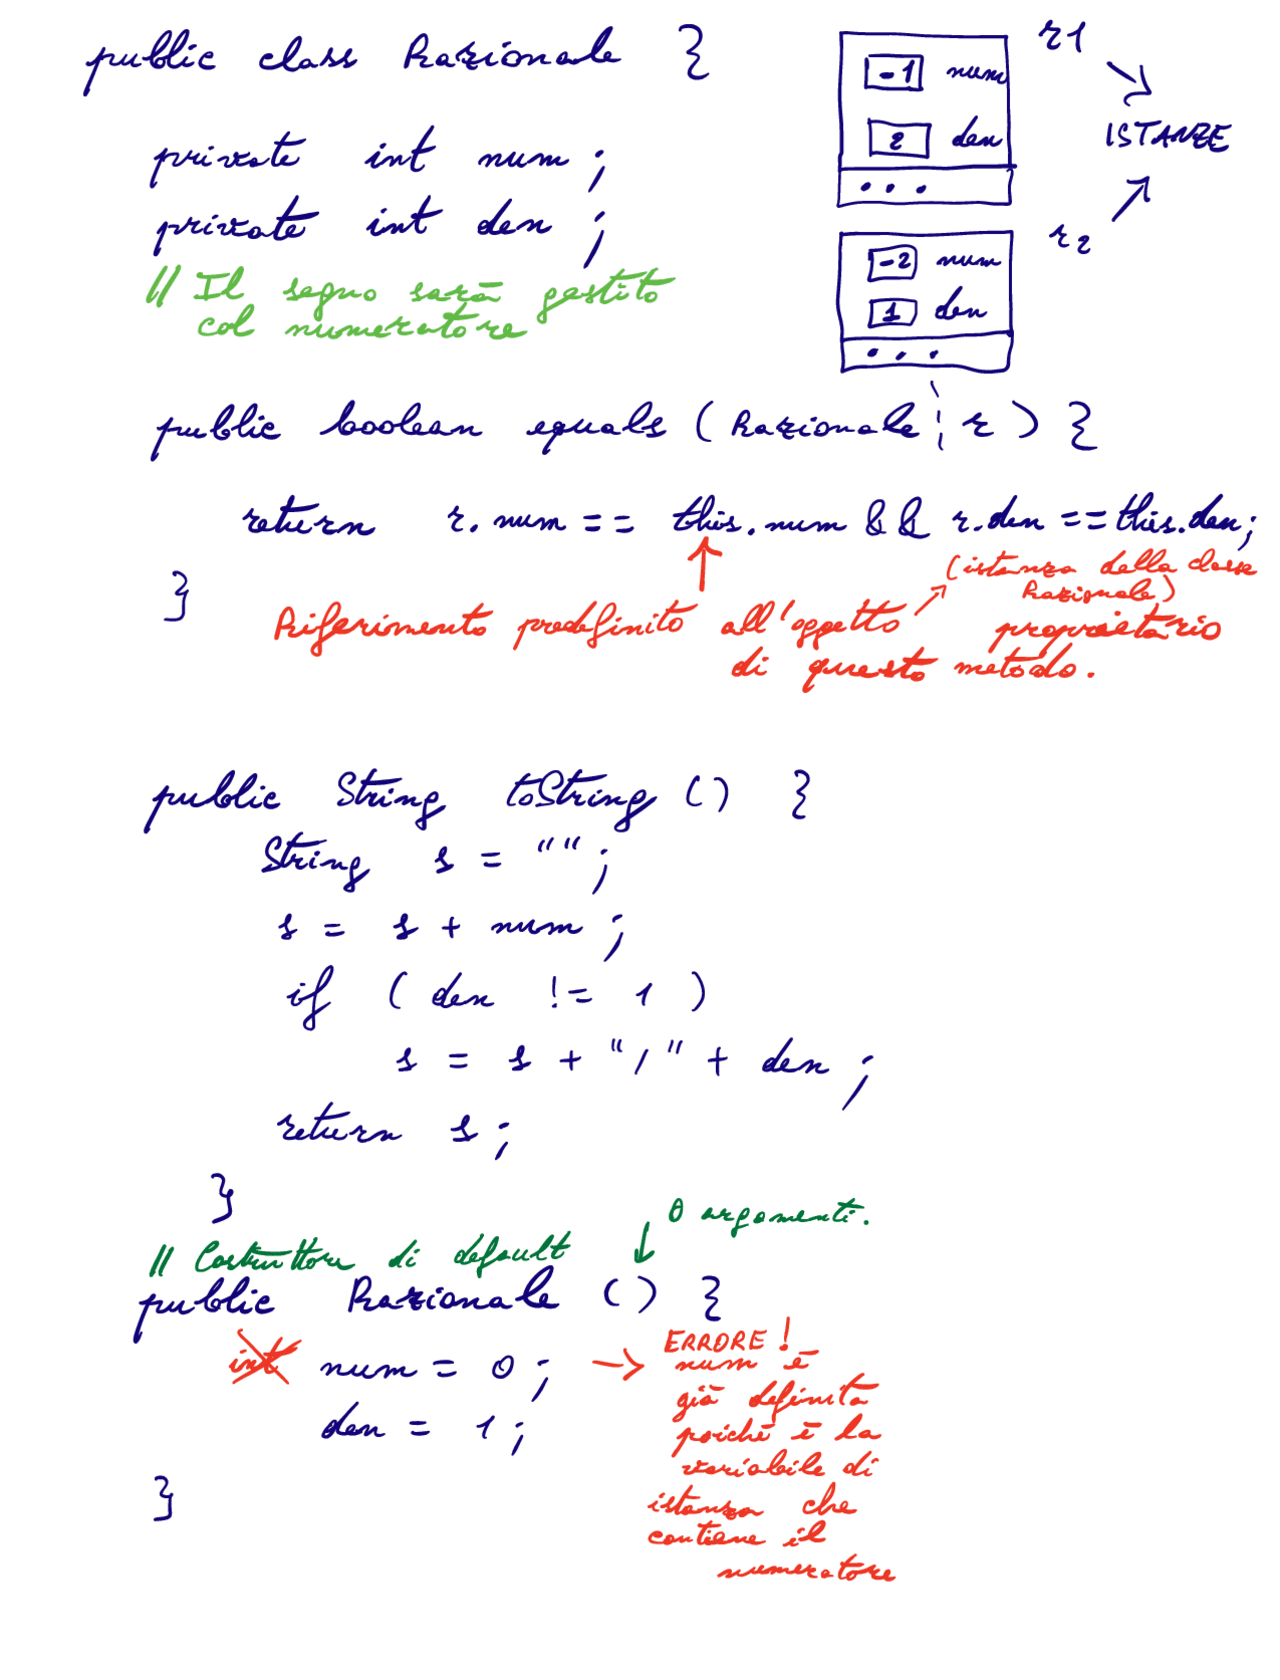 public class Razionale {
r1
-1 num
2 den
ISTANZE
...
private int num ;
private int den ;
r2
-2 num
1 den
...
// Il segno sarà gestito
col numeratore
public boolean equals ( Razionale r ) {
return r.num == this.num && r.den == this.den;
}
(istanza della classe
Razionale)
Riferimento predefinito all'oggetto proprietario
di questo metodo.
public String toString () {
String s = "" ;
s = s + num ;
if ( den != 1 )
s = s + "/" + den ;
return s ;
}
0 argomenti.
// Costruttore di default
public Razionale () {
int num = 0 ;
den = 1 ;
}
ERRORE !
num è
già definita
poichè è la
variabile di
istanza che
contiene il
numeratore